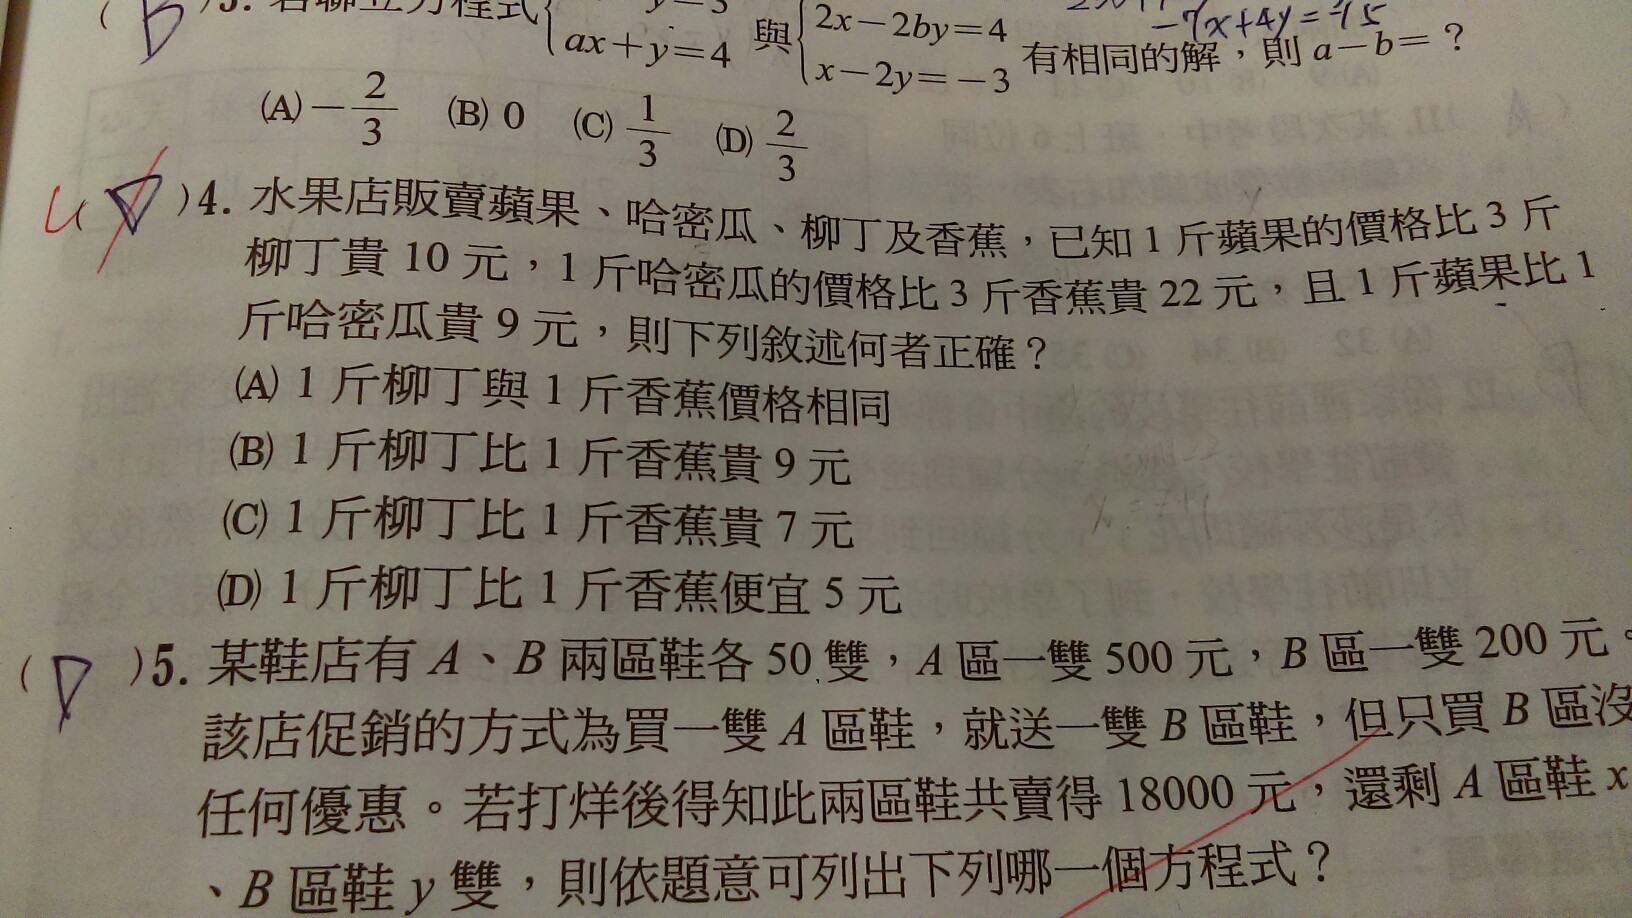 ( B )3. 若聯立方程式{ y=3 ax+y=4 與{ 2x-2by=4 x-2y=-3 有相同的解，則 a-b=？
-7x+4y=-15
(A) -2/3 (B) 0 (C) 1/3 (D) 2/3
( D )4. 水果店販賣蘋果、哈密瓜、柳丁及香蕉，已知 1 斤蘋果的價格比 3 斤
柳丁貴 10 元，1 斤哈密瓜的價格比 3 斤香蕉貴 22 元，且 1 斤蘋果比 1
斤哈密瓜貴 9 元，則下列敘述何者正確？
(A) 1 斤柳丁與 1 斤香蕉價格相同
(B) 1 斤柳丁比 1 斤香蕉貴 9 元
(C) 1 斤柳丁比 1 斤香蕉貴 7 元
(D) 1 斤柳丁比 1 斤香蕉便宜 5 元
( D )5. 某鞋店有 A、B 兩區鞋各 50 雙，A 區一雙 500 元，B 區一雙 200 元。
該店促銷的方式為買一雙 A 區鞋，就送一雙 B 區鞋，但只買 B 區沒
任何優惠。若打烊後得知此兩區鞋共賣得 18000 元，還剩 A 區鞋 x
、B 區鞋 y 雙，則依題意可列出下列哪一個方程式？